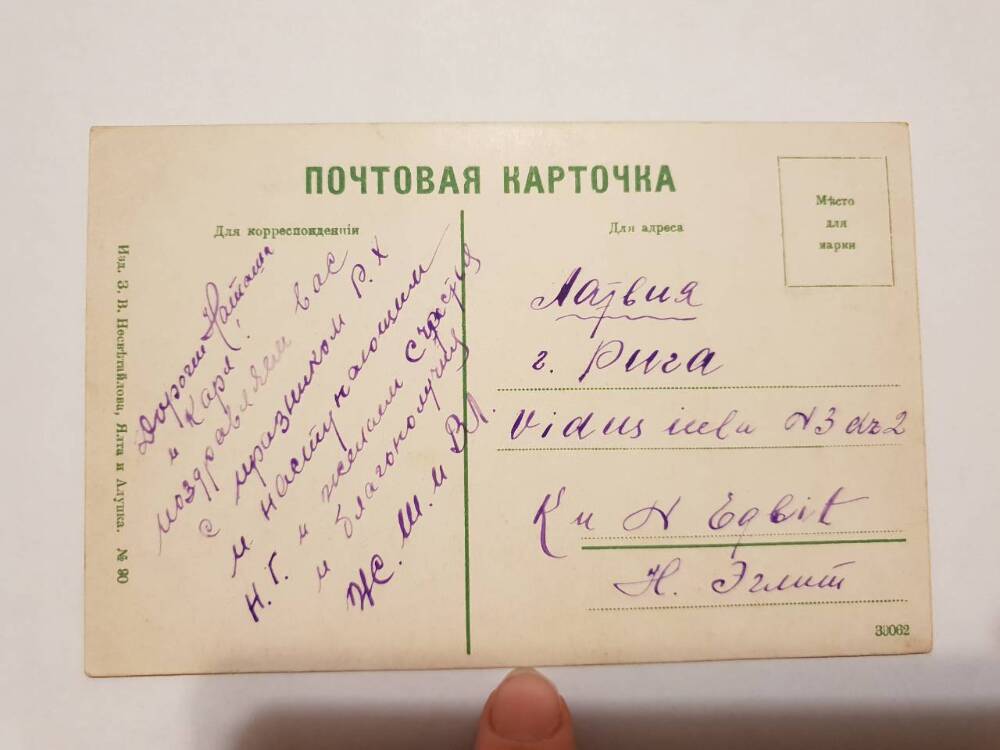 ПОЧТОВАЯ КАРТОЧКА
Для корреспонденціи
Для адреса
Мѣсто
для
марки
Изд. З. В. Несвѣтайлова, Ялта и Алупка. № 90
Дорогіи Наташа
и Карл!
поздравляем вас
с празником Р.Х
и наступающим
Н.Г. и желаем счастия
и благополучия
Ж. Ш. и Вл.
Латвия
г. Рига
Vidus iela N3 dz2
K u N Eglit
Н. Эглит
39062